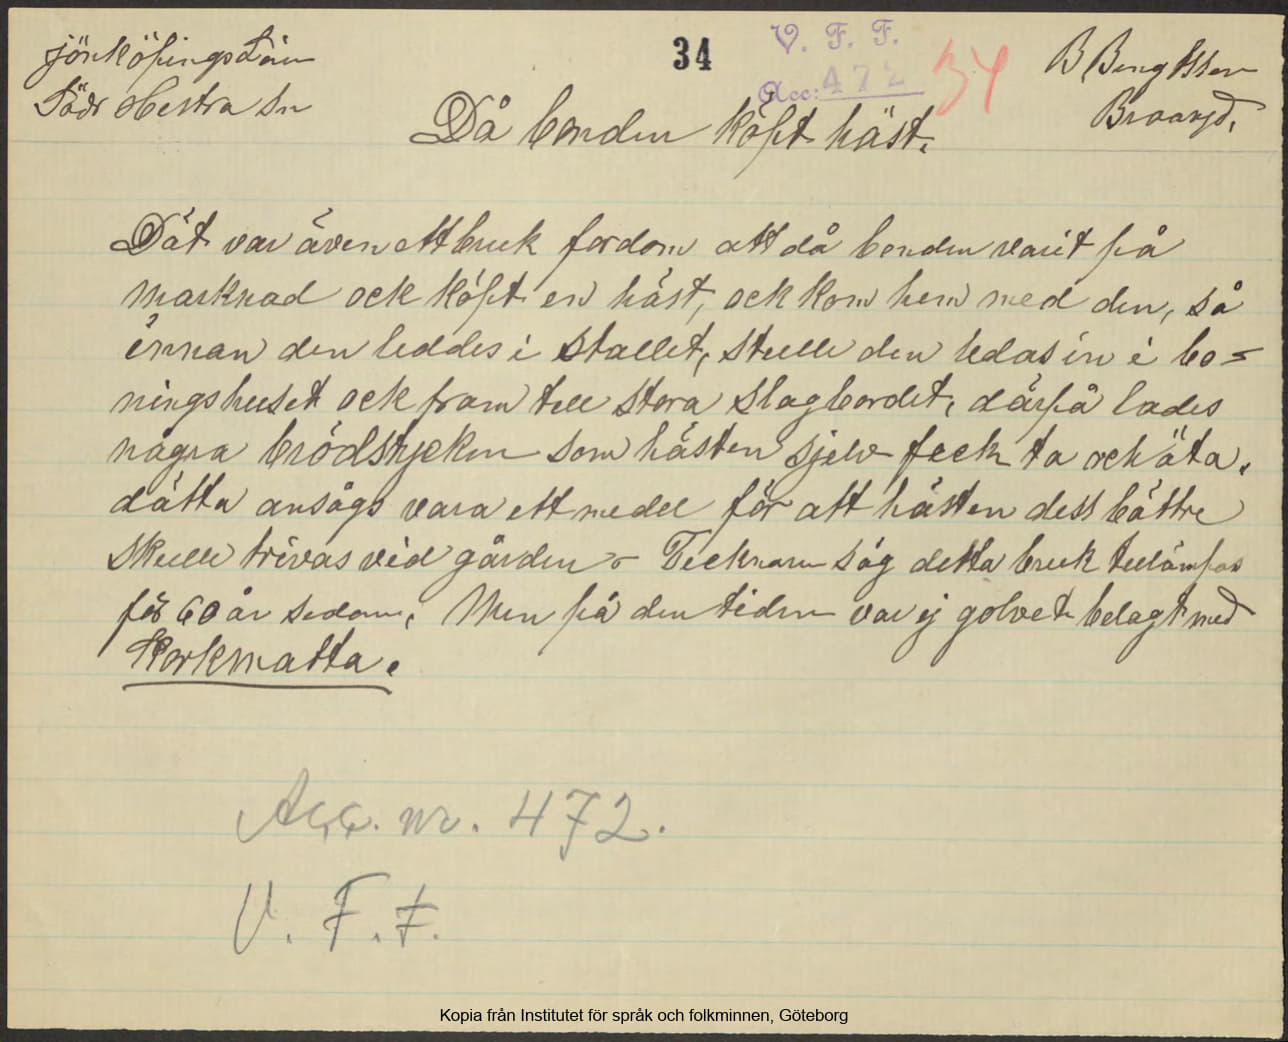 Jönköpings Län
Södr Hestra Sn
34
V. F. F.
Acc: 472
34
B Bengtsson
Då bonden köpt häst.
Dät var även ett bruk fordom att då bonden varit på
marknad ock köpt en häst, ock kom hem med den, så
ennan den leddes i stallet, skulle den ledas in i bo=
ningshuset ock fram till stora slagbordet, därpå lades
några brödstycken som hästen sjelv feck ta och äta.
dätta ansågs vara ett medel för att hästen dess bättre
skulle trivas vid gården - Tecknaren såg detta bruk tillämpas
för 60 år sedan. Men på den tiden var ej golvet belagt med
Korkmatta.
Acc. nr. 472.
V. F. F.
Kopia från Institutet för språk och folkminnen, Göteborg